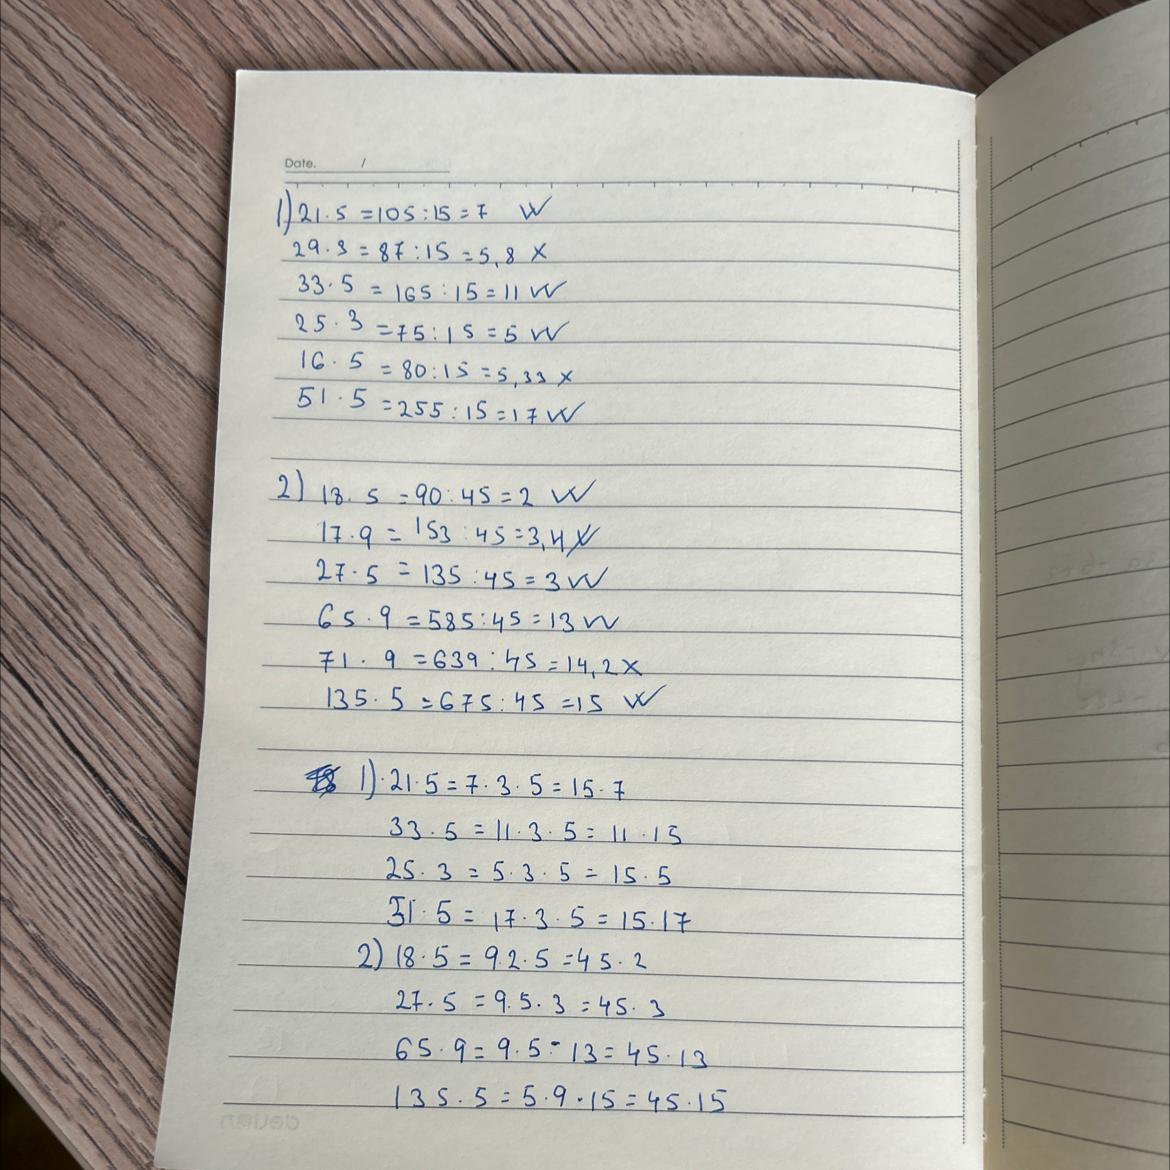 Date. /
1) 21.5 = 105 : 15 = 7 W
29.3 = 87 : 15 = 5,8 X
33.5 = 165 : 15 = 11 W
25.3 = 75 : 15 = 5 W
16.5 = 80 : 15 = 5,33 X
51.5 = 255 : 15 = 17 W
2) 18.5 = 90 : 45 = 2 W
17.9 = 153 : 45 = 3,4 X
27.5 = 135 : 45 = 3 W
65.9 = 585 : 45 = 13 W
71.9 = 639 : 45 = 14,2 X
135.5 = 675 : 45 = 15 W
1) 21.5 = 7.3.5 = 15.7
33.5 = 11.3.5 = 11.15
25.3 = 5.3.5 = 15.5
51.5 = 17.3.5 = 15.17
2) 18.5 = 9.2.5 = 45.2
27.5 = 9.5.3 = 45.3
65.9 = 9.5.13 = 45.13
135.5 = 5.9.15 = 45.15